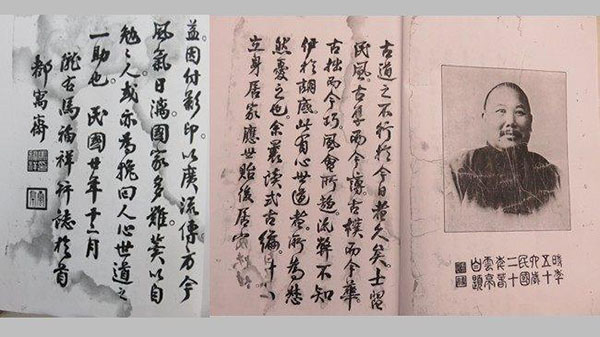 時年
五十
六歲
民國
二十
年春
雲亭
自題
古道之不行於今日者久矣士習
民風。古厚而今澆。古樸而今華
古拙而今巧。風會所趨。流弊不知
伊於胡底。此有心世道者所為悲
然憂之也。余曩讀式古編。計
立身居家應世貽後居官
益。因付影印。以廣流傳。方今
風氣日漓。國家多難。冀以自
勉々人。或亦為挽回人心世道之
一助也。民國廿年十二月
隴右馬福祥誌於首
都寓齋